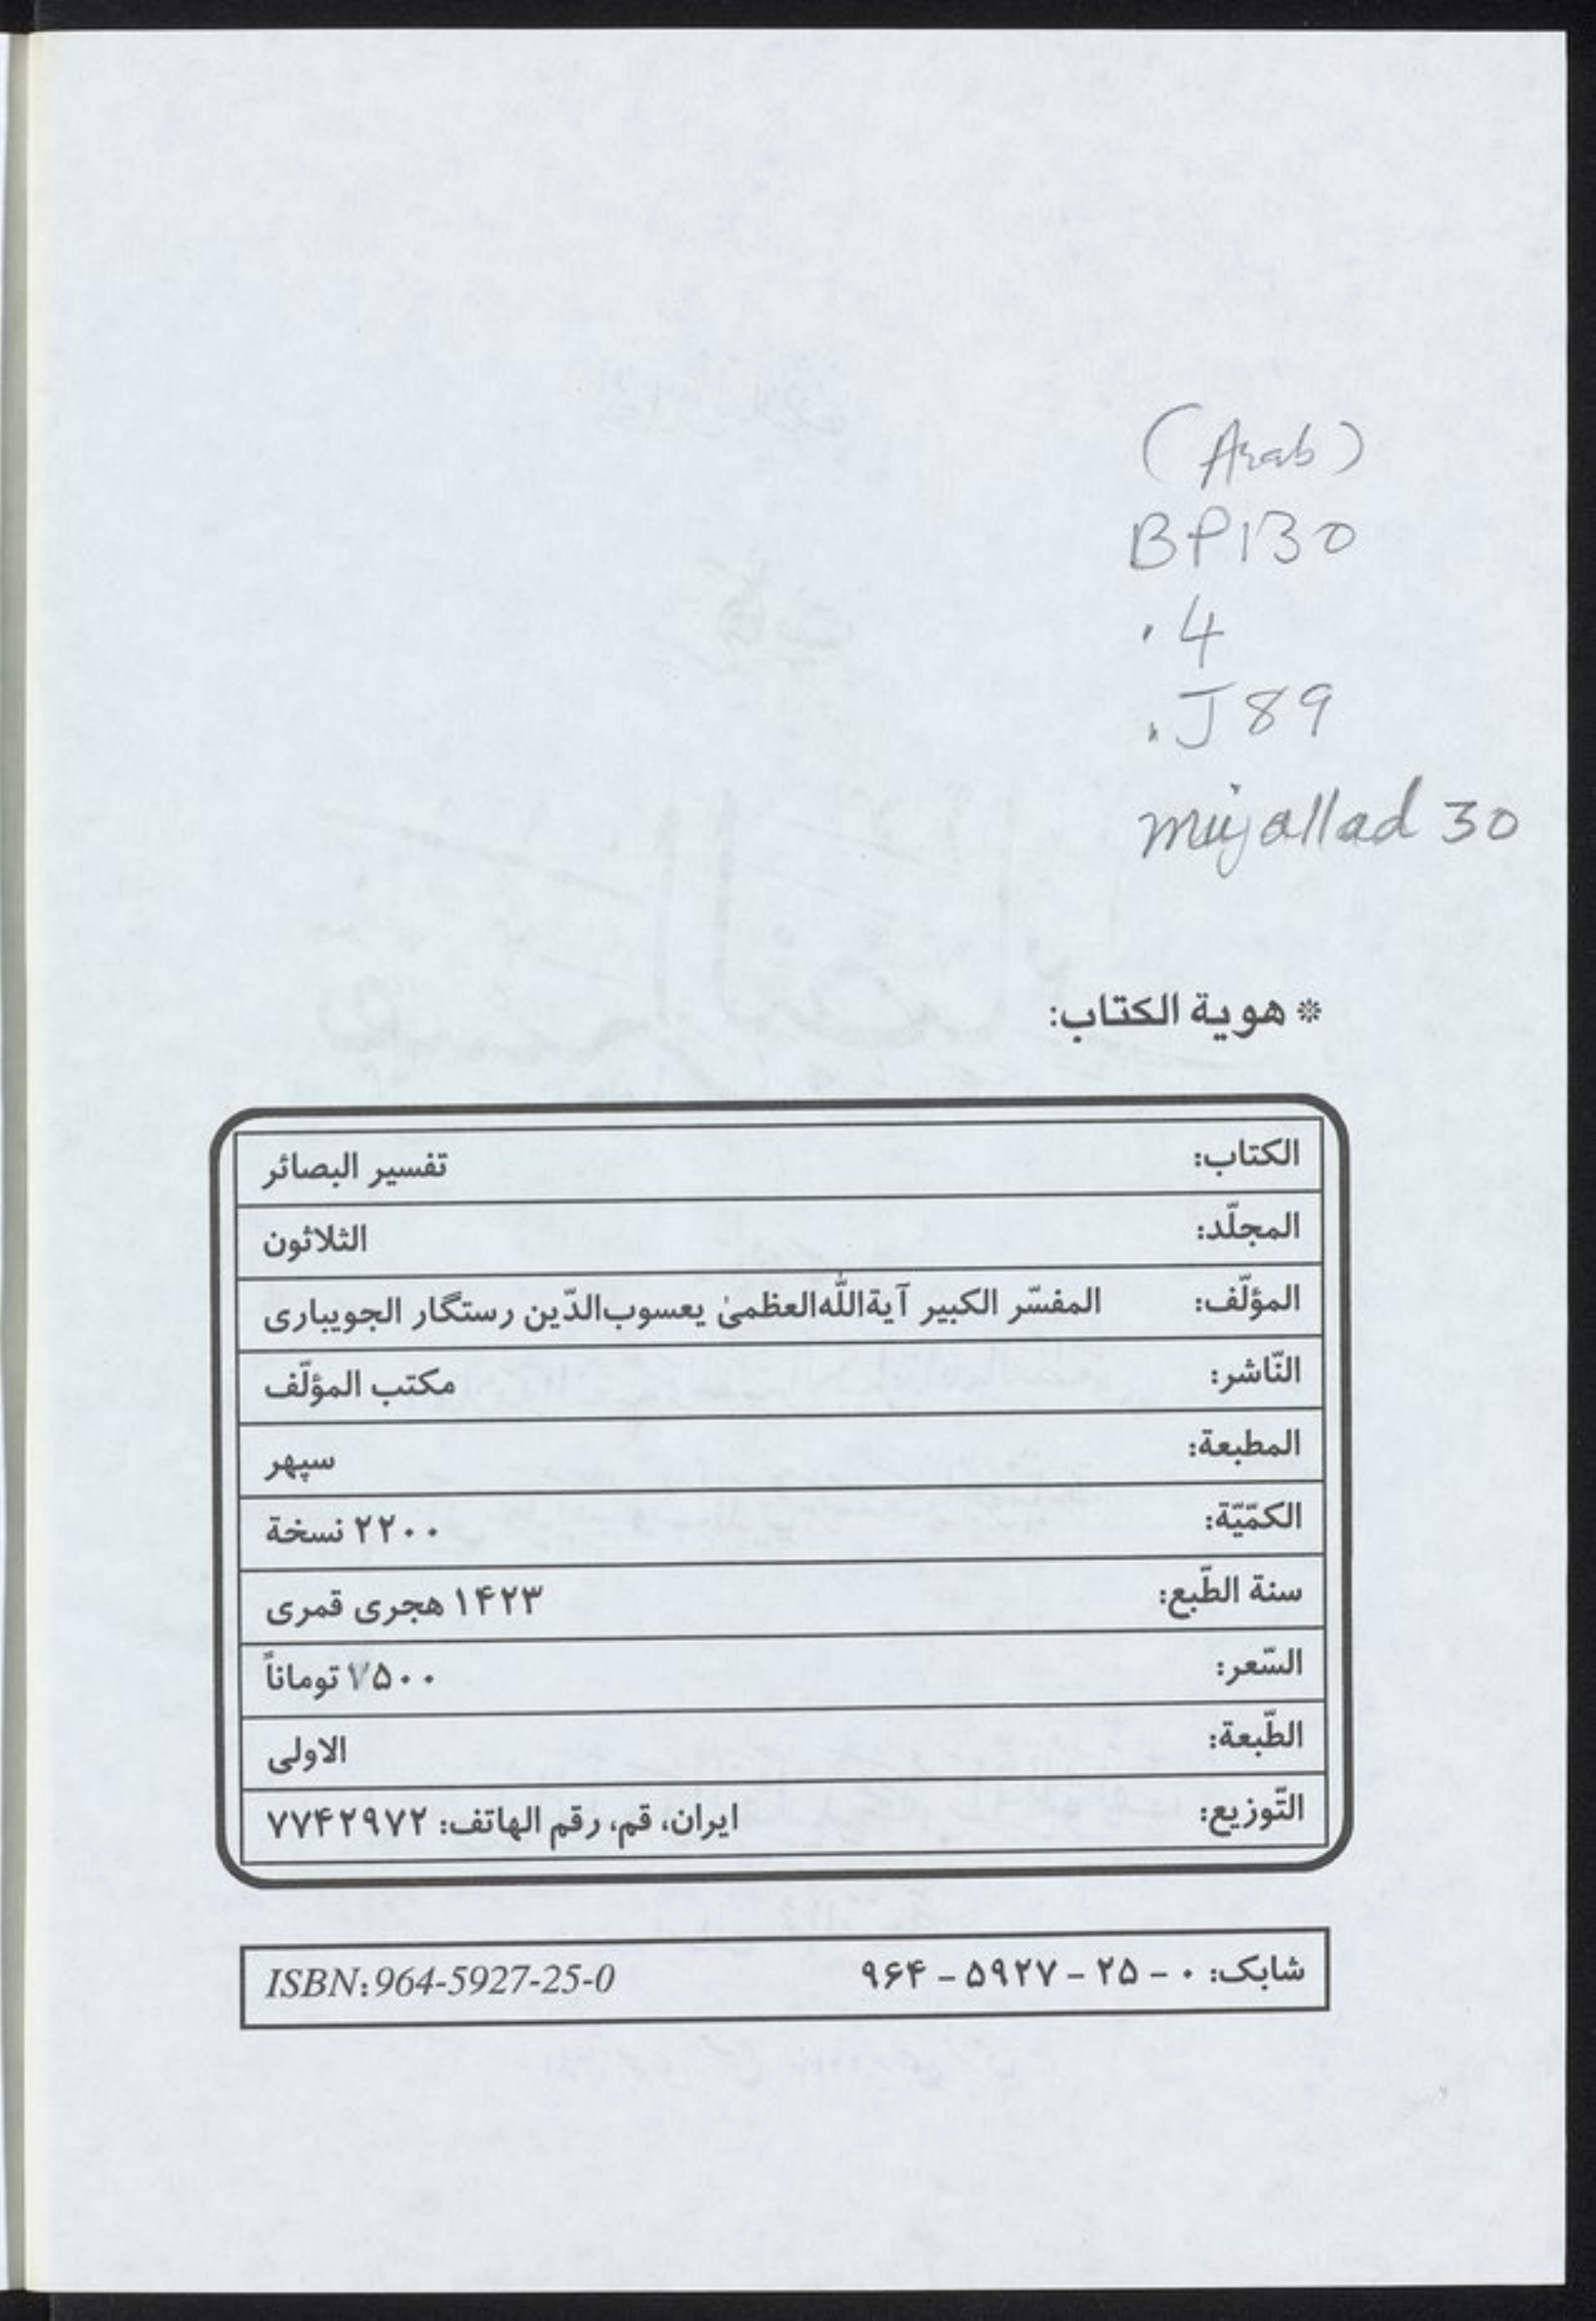 (Arab)
BP130
.4
.J89
mujallad 30
* هوية الكتاب:
الكتاب: تفسير البصائر
المجلّد: الثلاثون
المؤلّف: المفسّر الكبير آيةاللّٰهالعظمىٰ يعسوبالدّين رستگار الجويبارى
النّاشر: مكتب المؤلّف
المطبعة: سپهر
الكمّيّة: ۲۲۰۰ نسخة
سنة الطّبع: ۱۴۲۳ هجرى قمرى
السّعر: ۷۵۰۰ توماناً
الطّبعة: الاولى
التّوزيع: ايران، قم، رقم الهاتف: ۷۷۴۲۹۷۲
شابک: ۰ - ۲۵ - ۵۹۲۷ - ۹۶۴ ISBN: 964-5927-25-0